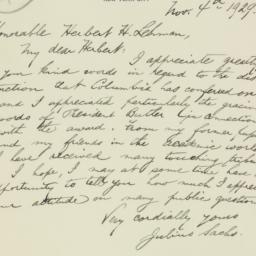 Nov. 4th 1929
Honorable Herbert H. Lehman,
My dear Herbert:
I appreciate greatly
your kind words in regard to the dis
tinction that Columbia has conferred on
and I appreciated particularly the gracious
words of President Butler in connection
with the award. From my former
and my friends in the academic world
I have received many touching
I hope, I may at some time have
opportunity to tell you how much I apprec
attitude on many public question
Very cordially yours
Julius Sachs.